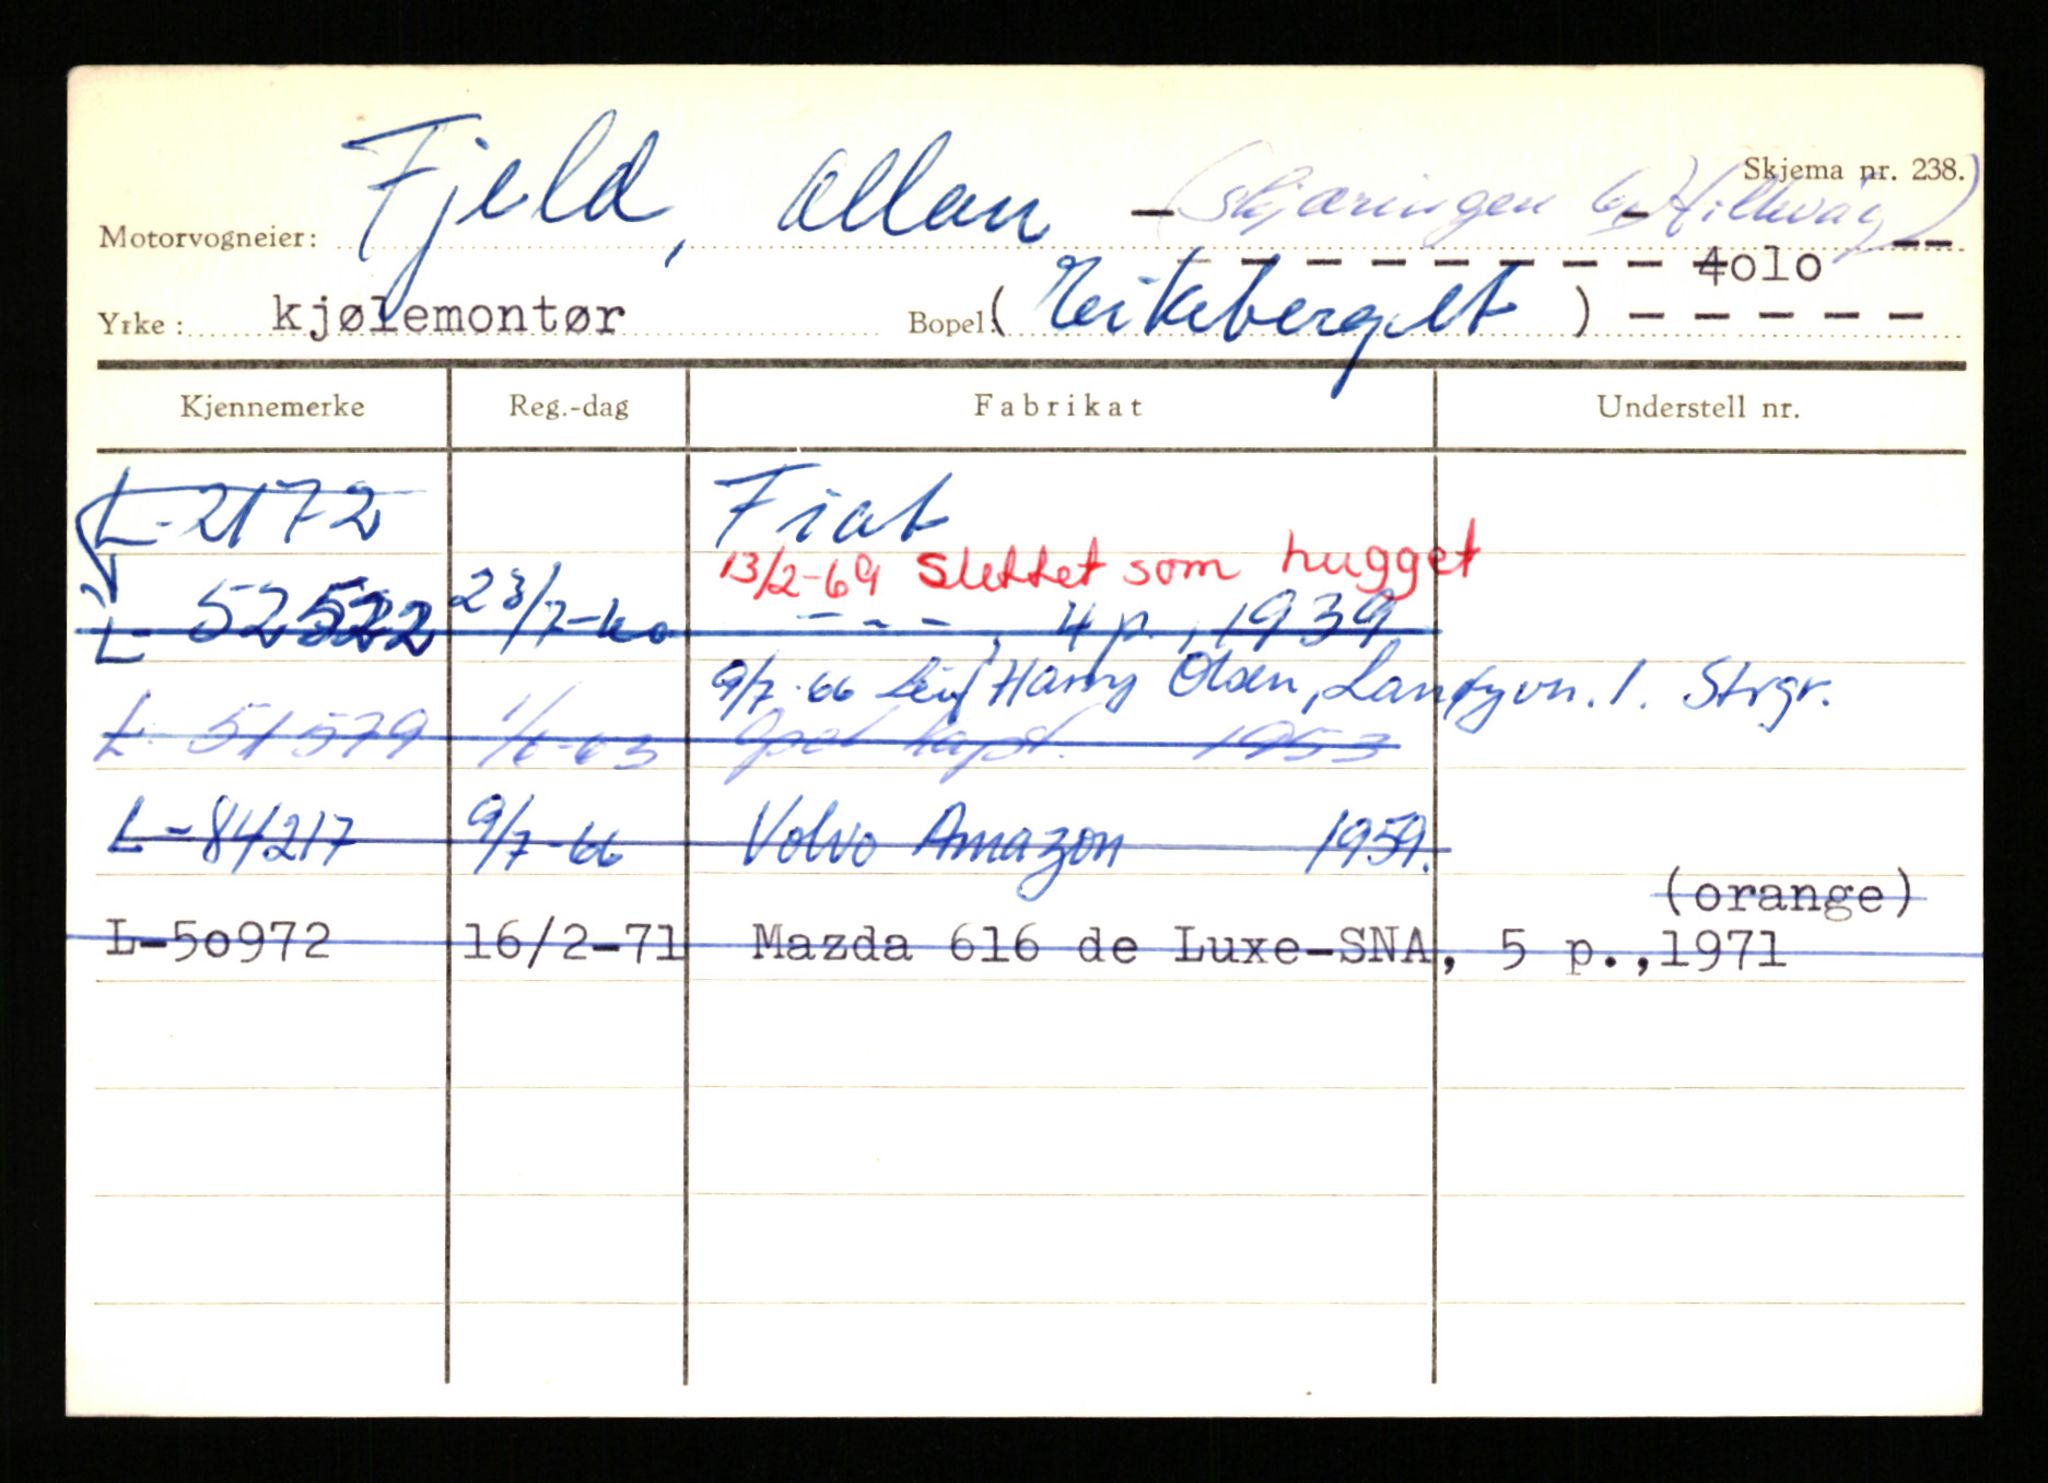 Skjema nr. 238.
Motorvogneier: Fjeld, Allan (Skjæringen 6, Hillevåg)
4olo
Yrke: kjølemontør Bopel: ( Eikeberget )
Kjennemerke Reg.-dag Fabrikat Understell nr.
L-2172 Fiat
13/2-69 Slettet som hugget
L- 52522 23/7-60 - - - , 4 p., 1939
9/7-66 Leif Harry Olsen, Langgvn. 1. Strgr.
L- 51579 1/6-63 Opel kapt. 1953
L-84217 9/7-66 Volvo Amazon 1959.
(orange)
L-5o972 16/2-71 Mazda 616 de Luxe-SNA, 5 p.,1971